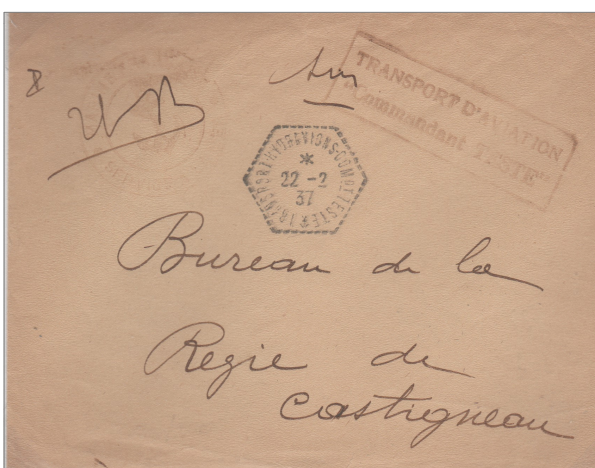 TRANSPORT D'AVIATION
"Commandant TESTE"
TRANSPORT HYDRAVIONS-COMDT TESTE
*
22 -2
37
Bureau de la
Regie de
Castigneau